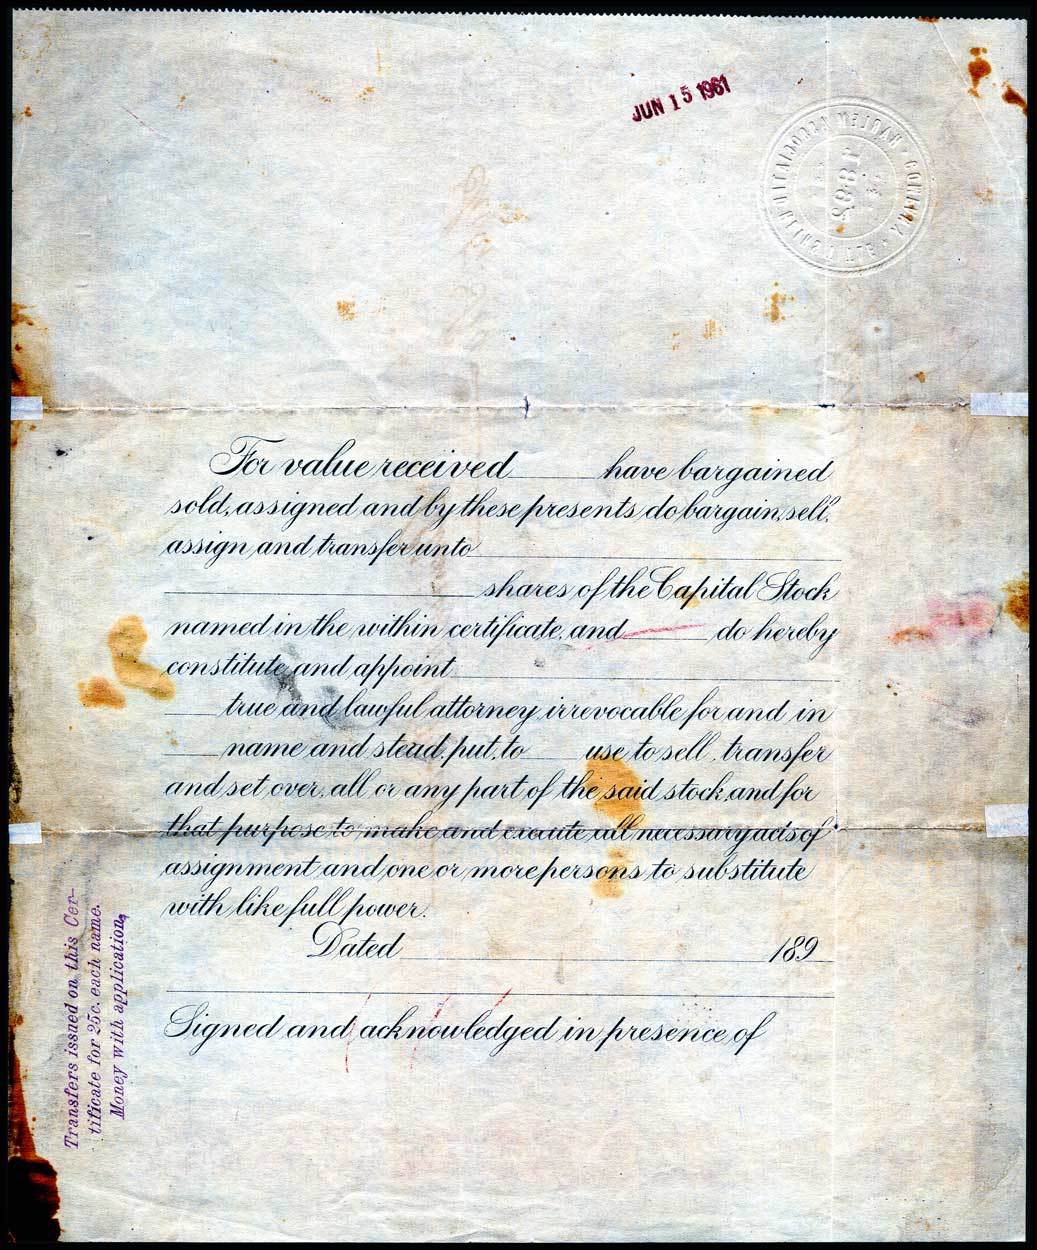 JUN 15 1961
1892
For value received ____ have bargained
sold, assigned and by these presents do bargain, sell,
assign and transfer unto
shares of the Capital Stock
named in the within certificate, and ____ do hereby
constitute and appoint
true and lawful attorney irrevocable for and in
name and stead, put, to ____ use to sell, transfer
and set over, all or any part of the said stock, and for
that purpose to make and execute all necessary acts of
assignment and one or more persons to substitute
with like full power.
Dated ____ 189
Signed and acknowledged in presence of
Transfers issued on this Cer-
tificate for 25c. each name.
Money with application.